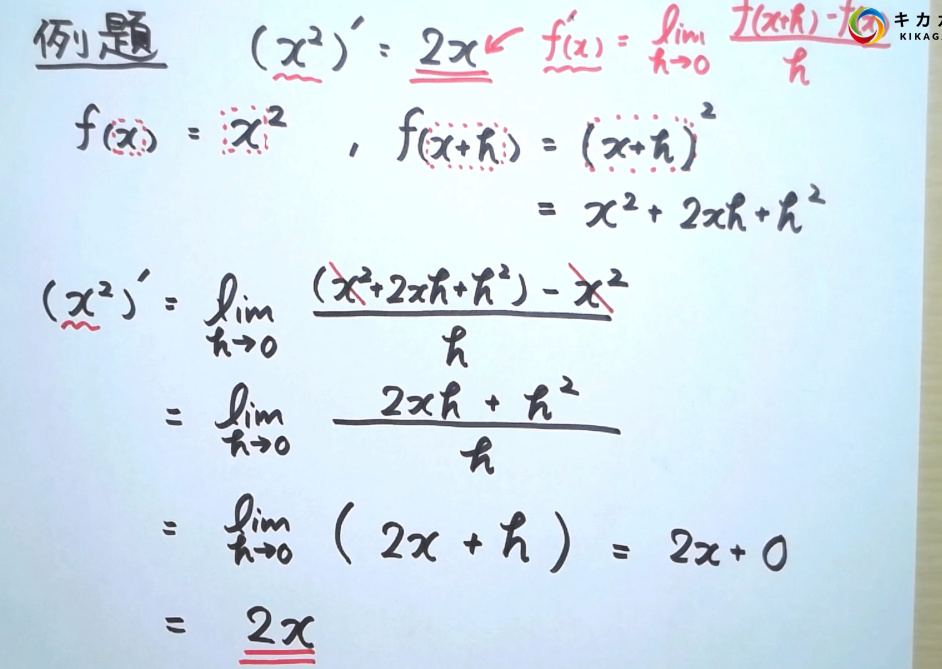 例題 (x²)′ = 2x f′(x) = lim h→0 f(x+h) - f(x) / h
キカガ
KIKAGA
f(x) = x² , f(x+h) = (x+h)²
= x² + 2xh + h²
(x²)′ = lim h→0 (x²+2xh+h²) - x² / h
= lim h→0 2xh + h² / h
= lim h→0 (2x + h) = 2x + 0
= 2x